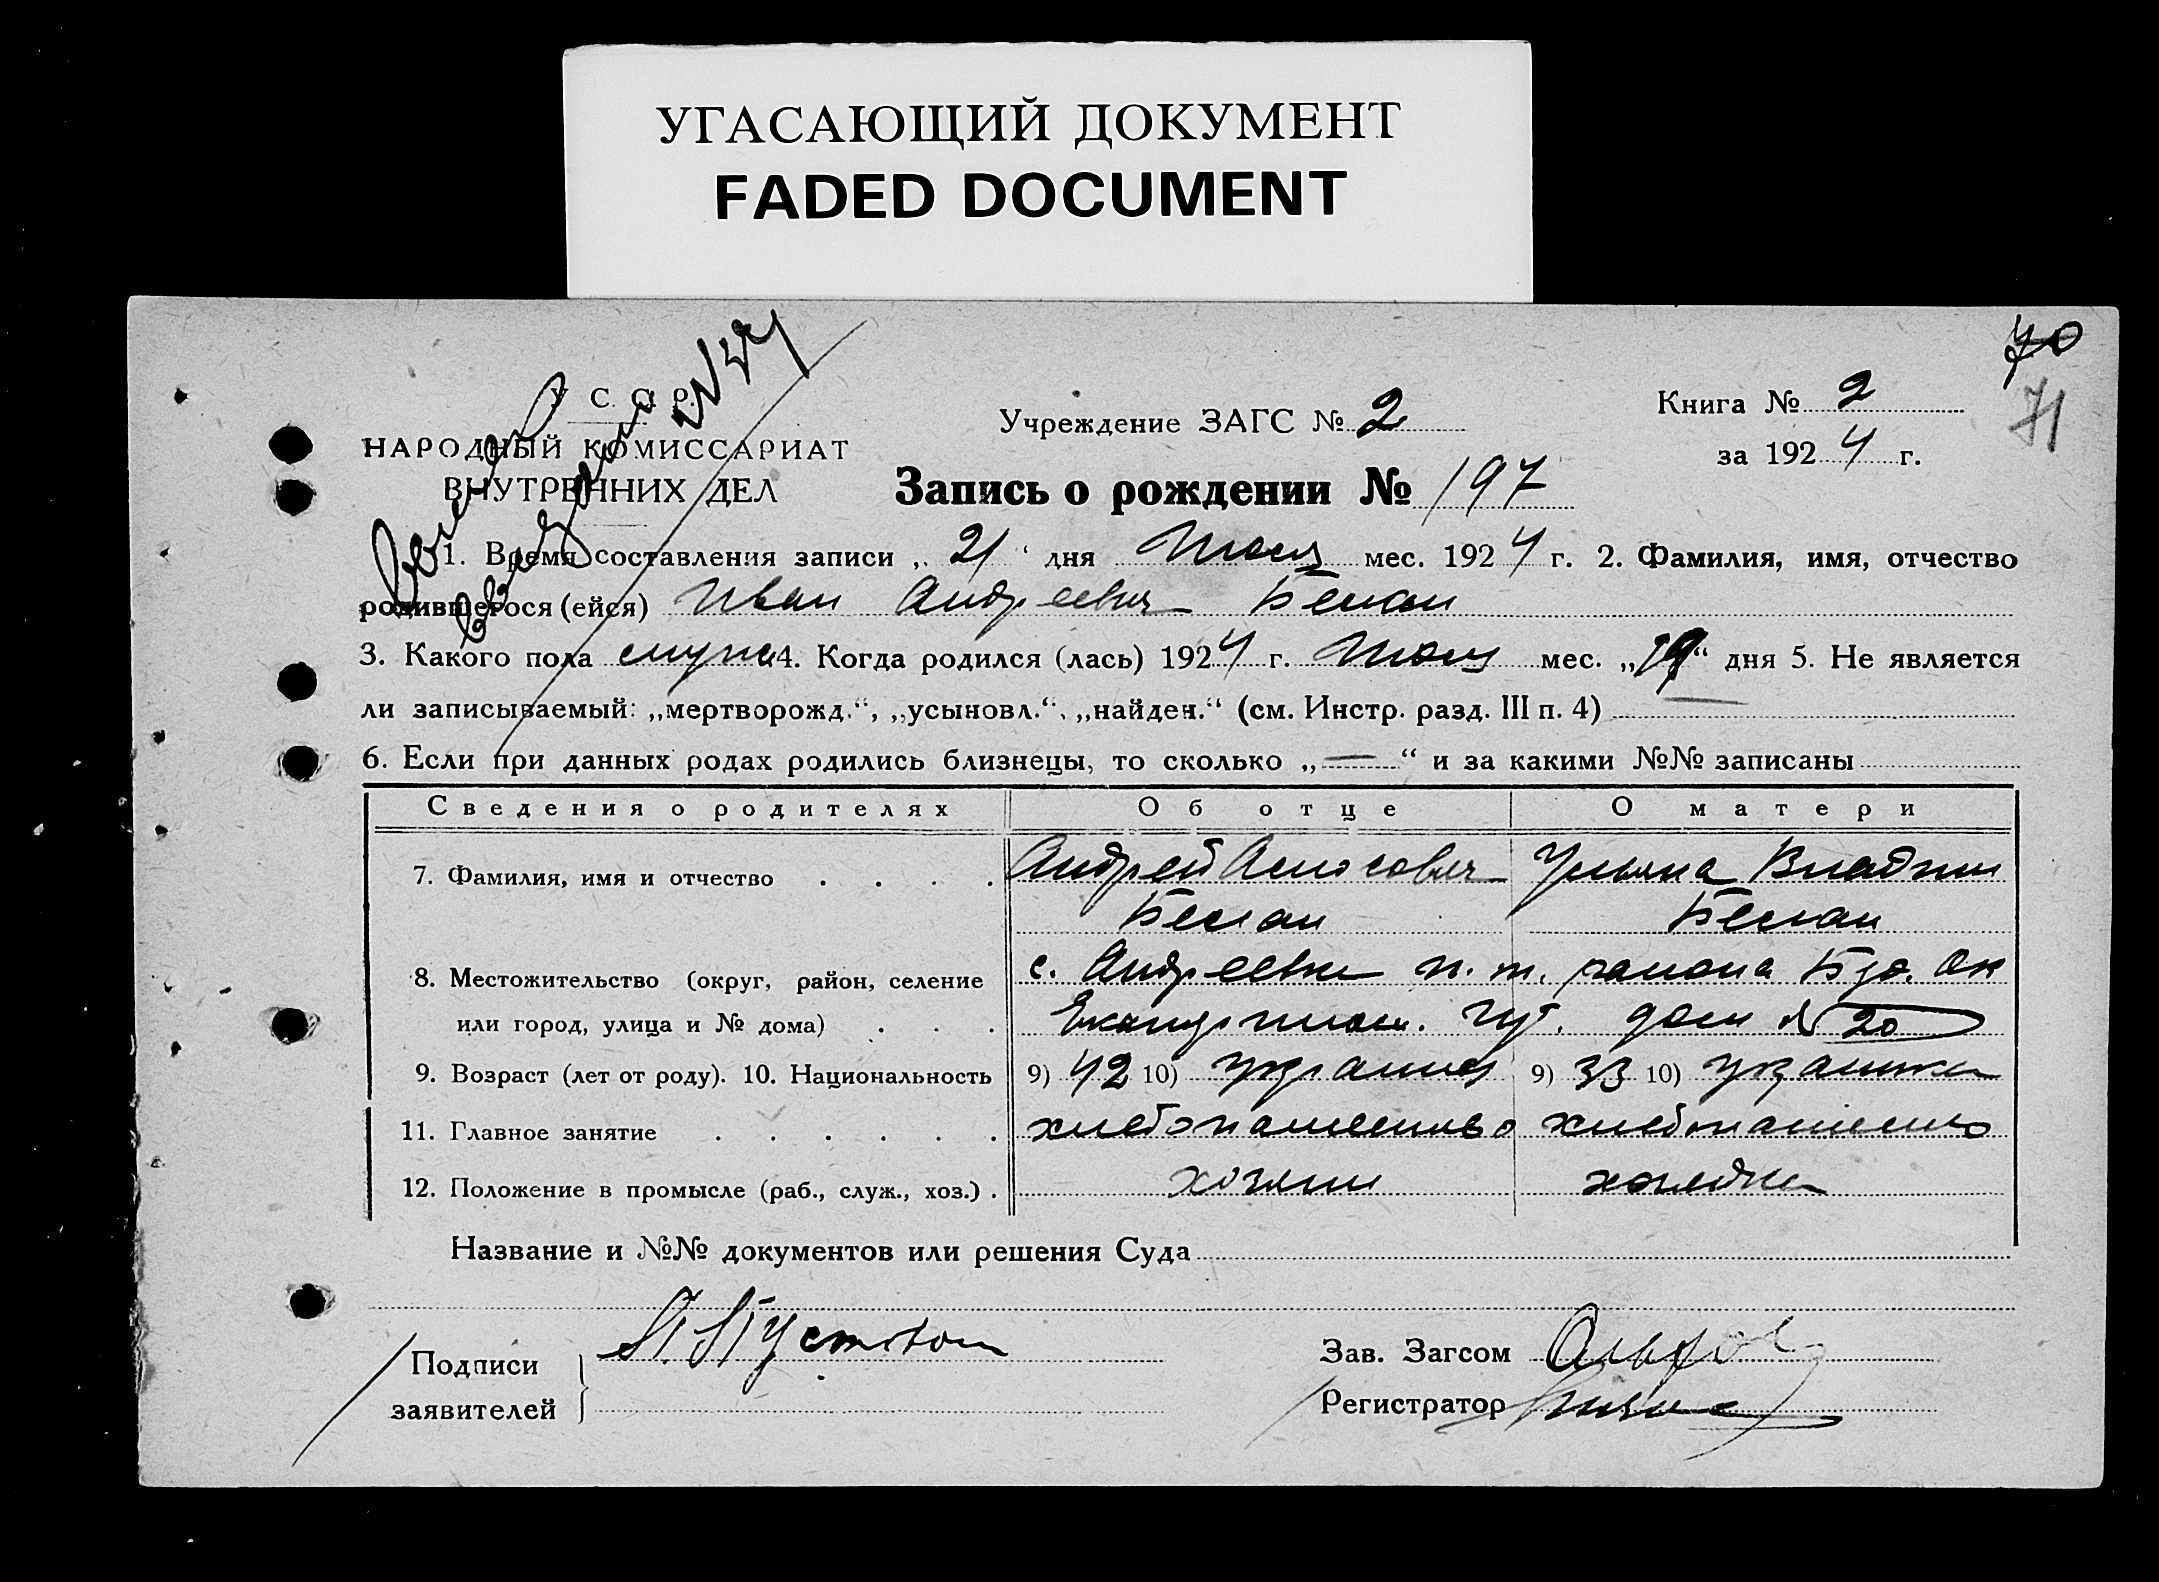 УГАСАЮЩИЙ ДОКУМЕНТ
FADED DOCUMENT
70
71
У С. С. Р.
НАРОДНЫЙ КОМИССАРИАТ
ВНУТРЕННИХ ДЕЛ
Учреждение ЗАГС № 2
Книга № 2
за 1924 г.
Запись о рождении № 197
1. Время составления записи „ 21 “ дня Июля мес. 1924 г. 2. Фамилия, имя, отчество
родившегося (ейся) Иван Андреевич
3. Какого пола 4. Когда родился (лась) 1924 г. Июля мес. „19“ дня 5. Не является
ли записываемый: „мертворожд.“, „усыновл.“, „найден.“ (см. Инстр. разд. III п. 4) —
6. Если при данных родах родились близнецы, то сколько „—“ и за какими №№ записаны
Сведения о родителях Об отце О матери
7. Фамилия, имя и отчество . . . . Андрей Ульяна
8. Местожительство (округ, район, селение с. Андреевка района
или город, улица и № дома) . . . губ. дом № 20
9. Возраст (лет от роду). 10. Национальность 9) 42 10) украинец 9) 33 10) украинка
11. Главное занятие . . . . . . хлебопашество хлебопашество
12. Положение в промысле (раб., служ., хоз.) . хозяин
Название и №№ документов или решения Суда
Подписи
заявителей
Зав. Загсом
Регистратор